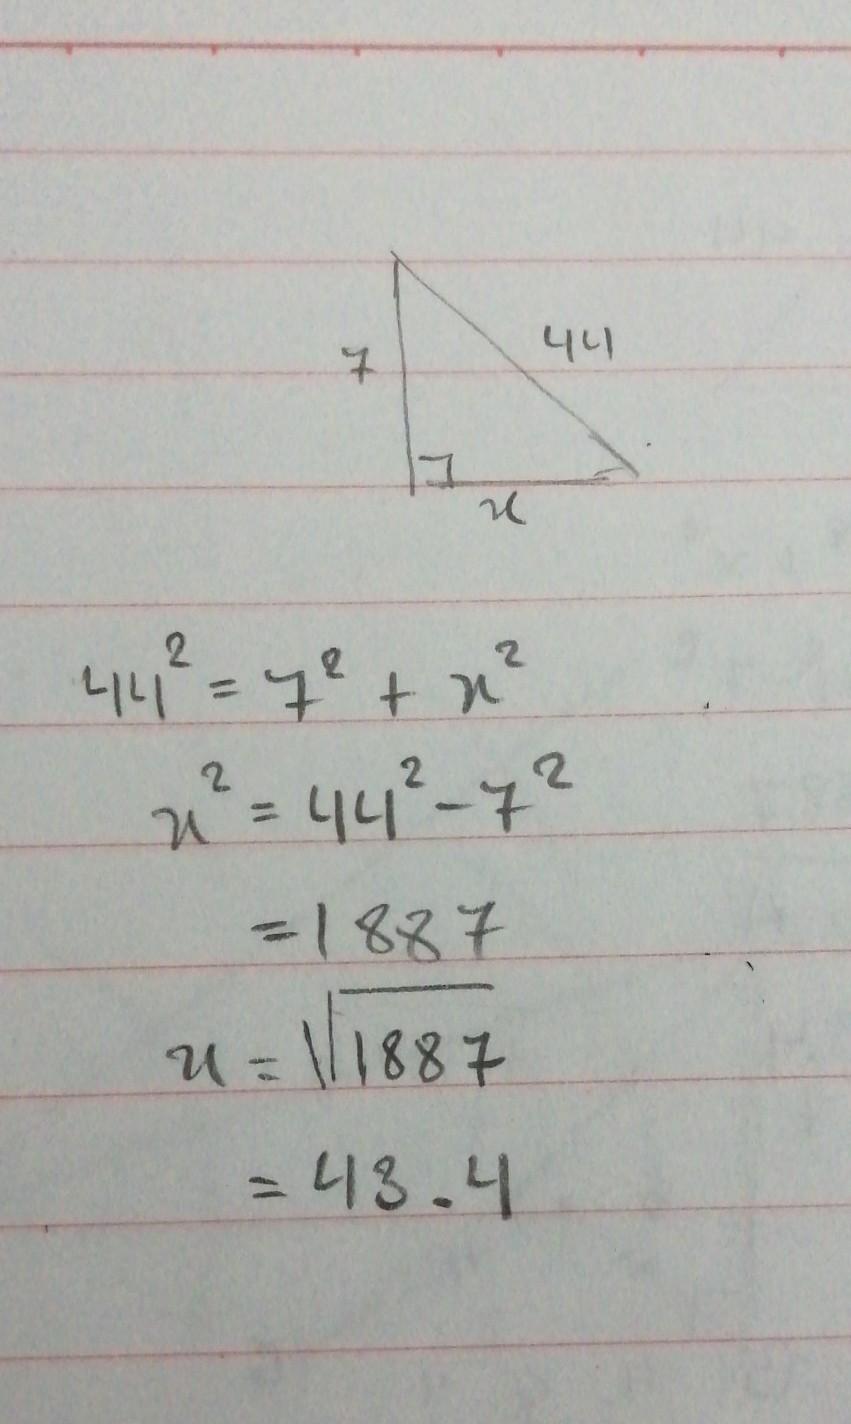 7
44
x
44² = 7² + x²
x² = 44² - 7²
= 1887
x = √1887
= 43.4